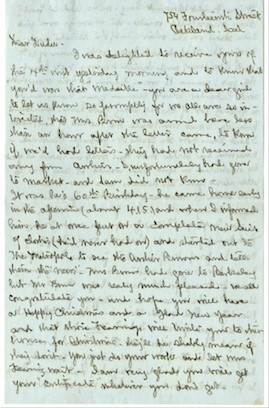 754 Fourteenth Street
Oakland. Cal
Dear Frieda -
I was delighted to receive yours of
the 4th inst yesterday morning, and to know that
you'd won that Medaille - you are a dear girl
to let us know so promptly for we all are so in-
terested, that Mrs. Benn was around here less
than an hour after the letter came, to know
if we'd had letters - they had not received
any from Arthur. I unfortunately had gone
to market - and Sam did not know -
It was his 60th Birthday - he came home early
in the afternoon (about 4.15) and when I informed
him, he at once put on a complete new suit
of clothes (had never had on) and started out to
the Metropole to see the Benns and tell
them the news - Mrs. had gone to Berkeley
but Mr was very much pleased. We all
congratulate you - and hope you will have
a Happy Christmas and a Glad New Year
and that
for Christmas he'll be
they don't. You just do your work and let Mrs.
wait - I am very glad you will get
your Certificate whatever you don't get.